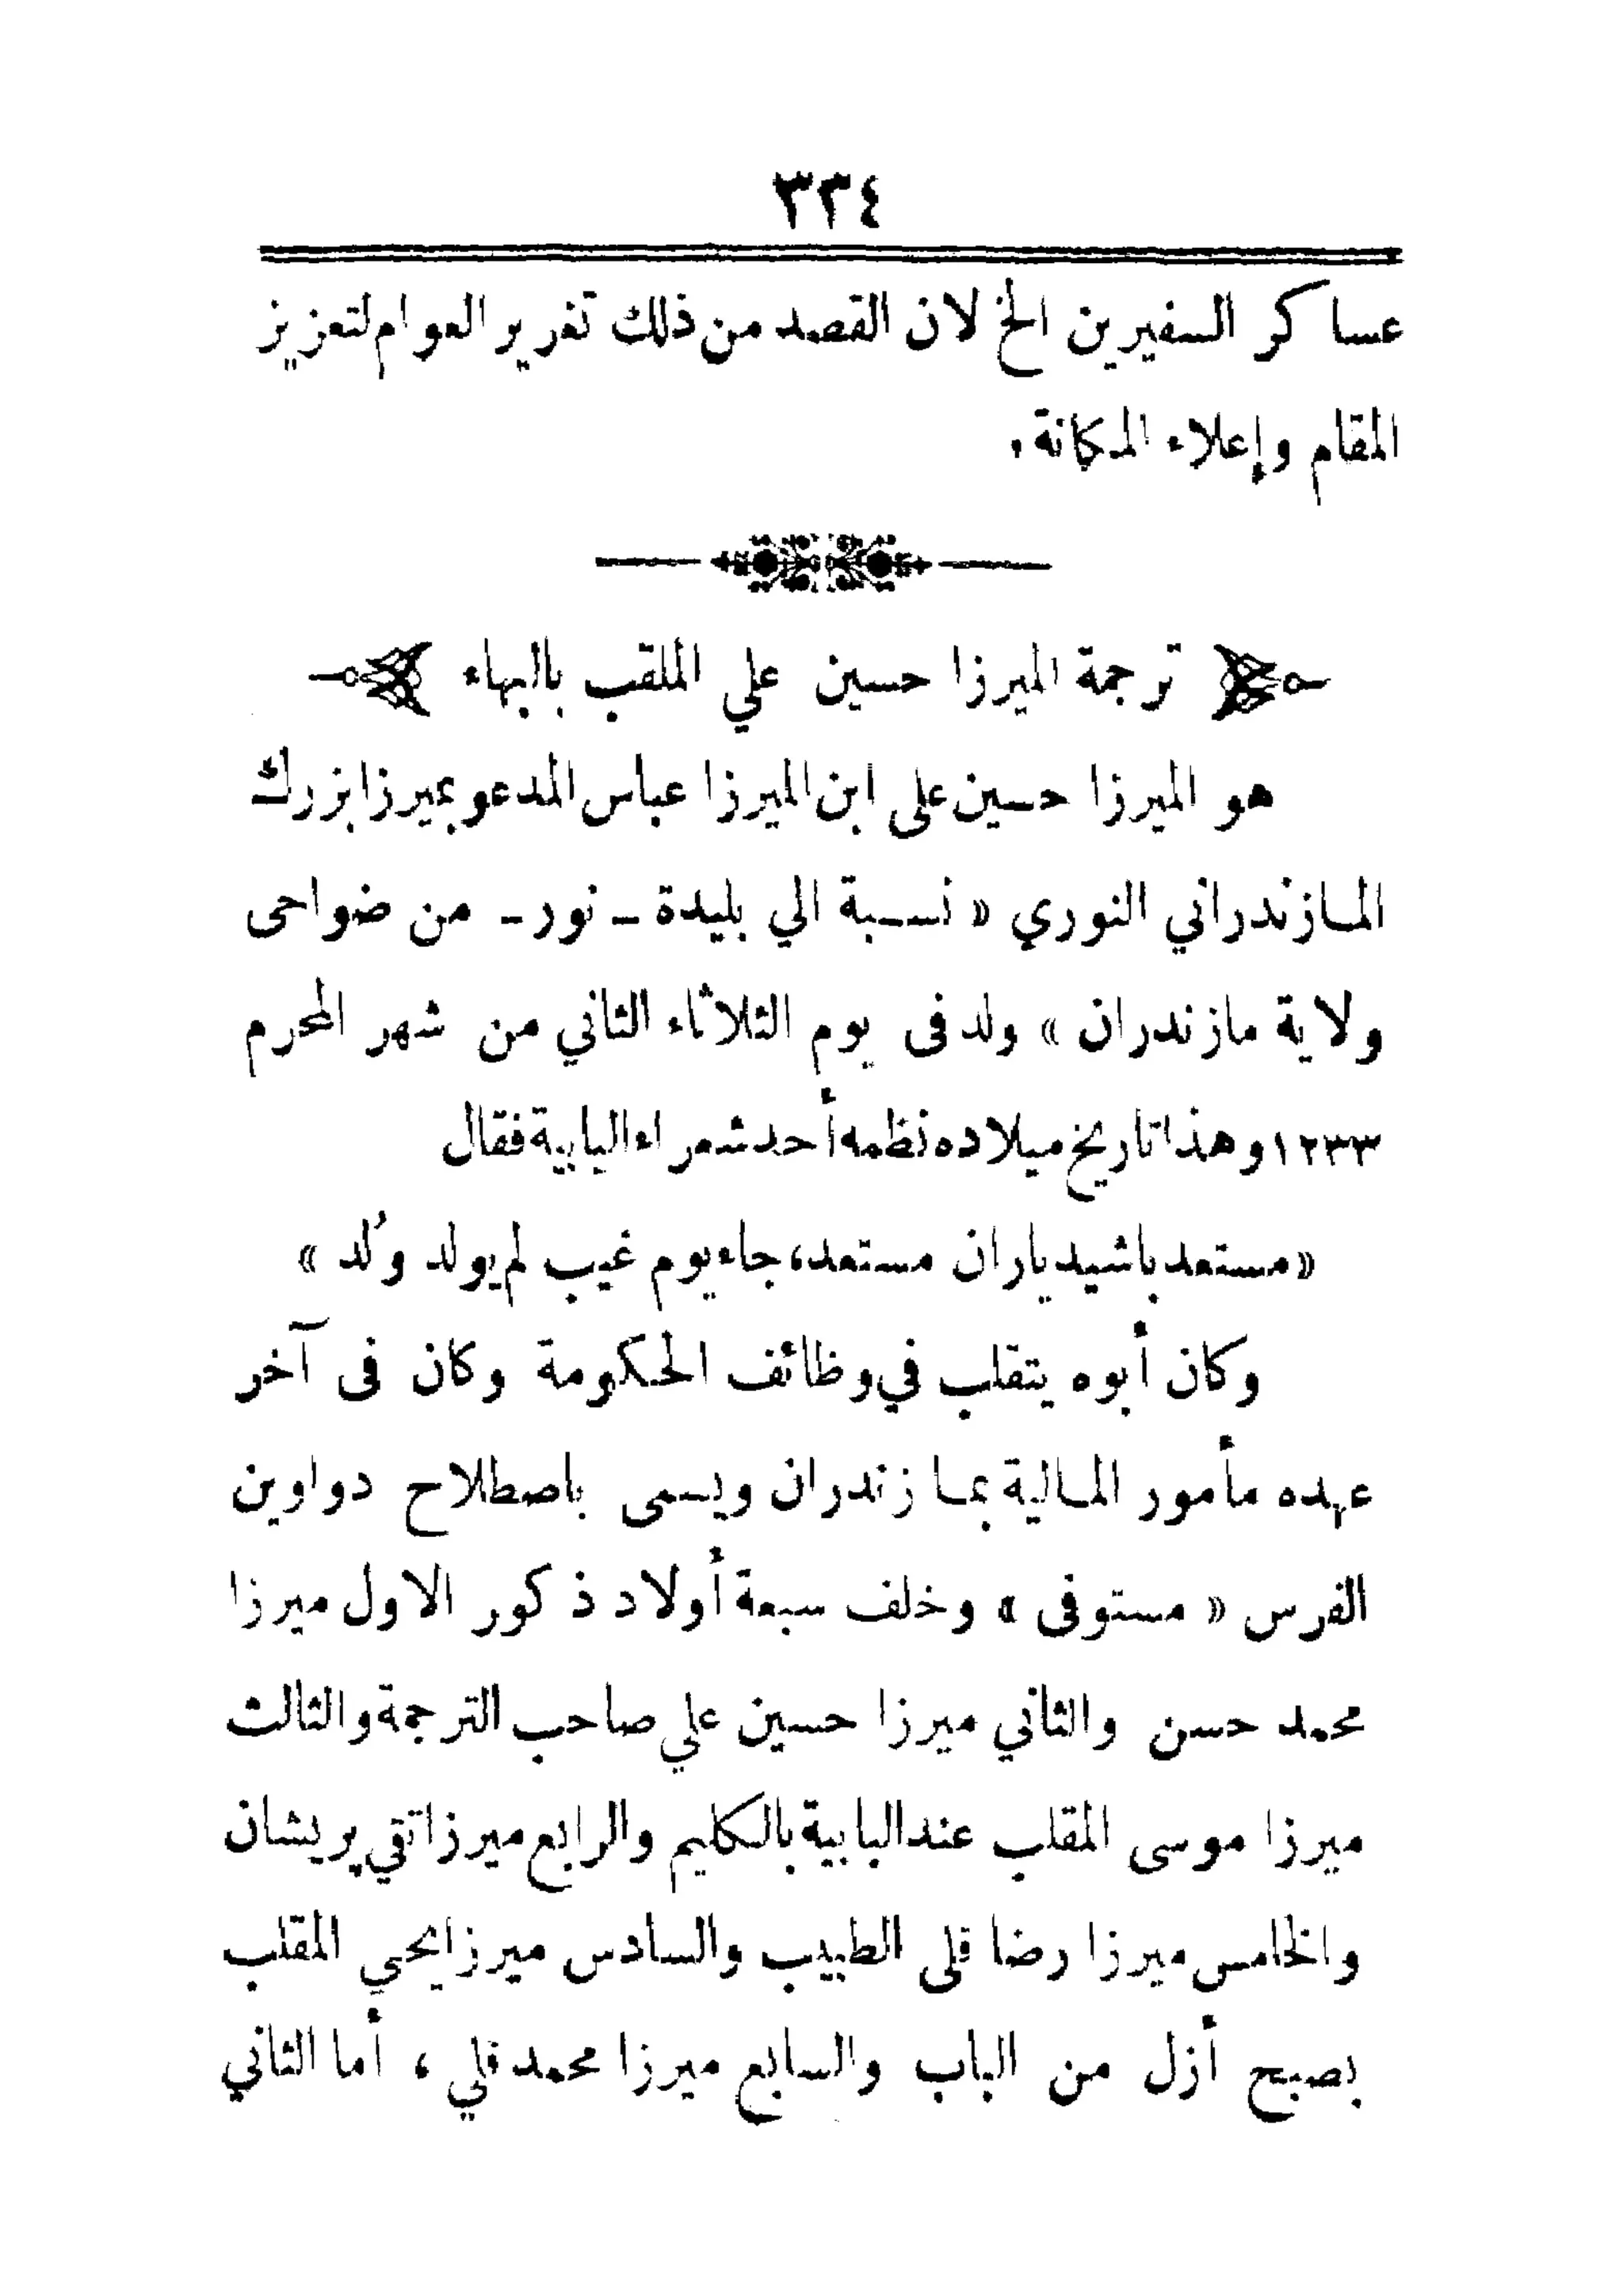 ٣٣٤
عساكر السفيرين الخ لان القصد من ذلك تغرير العوام لتعزيز
المقام وإعلاء المكانة.
ترجمة الميرزا حسين علي الملقب بالبهاء
هو الميرزا حسين على ابن الميرزا عباس المدعو بميرزا بزرك
المازندراني النوري « نسبة الي بليدة - نور - من ضواحى
ولاية مازندران » ولد فى يوم الثلاثاء الثاني من شهر المحرم
١٢٣٣ وهذا تاريخ ميلاده نظمه أحد شعراء البابية فقال
«مستعد باشيد ياران مستعد، جاء يوم غيب لم يولد وُلد »
وكان أبوه يتقلب في وظائف الحكومة وكان فى آخر
عهده مأمور المالية بمازندران ويسمى باصطلاح دواوين
الفرس « مستوفى » وخلف سبعة أولاد ذكور الاول ميرزا
محمد حسن والثاني ميرزا حسين علي صاحب الترجمة والثالث
ميرزا موسى المقلب عند البابية بالكليم والرابع ميرزا تقي پريشان
والخامس ميرزا رضا قلى الطبيب والسادس ميرزا يحيي المقلب
بصبح أزل من الباب والسابع ميرزا محمد قلي ، أما الثاني